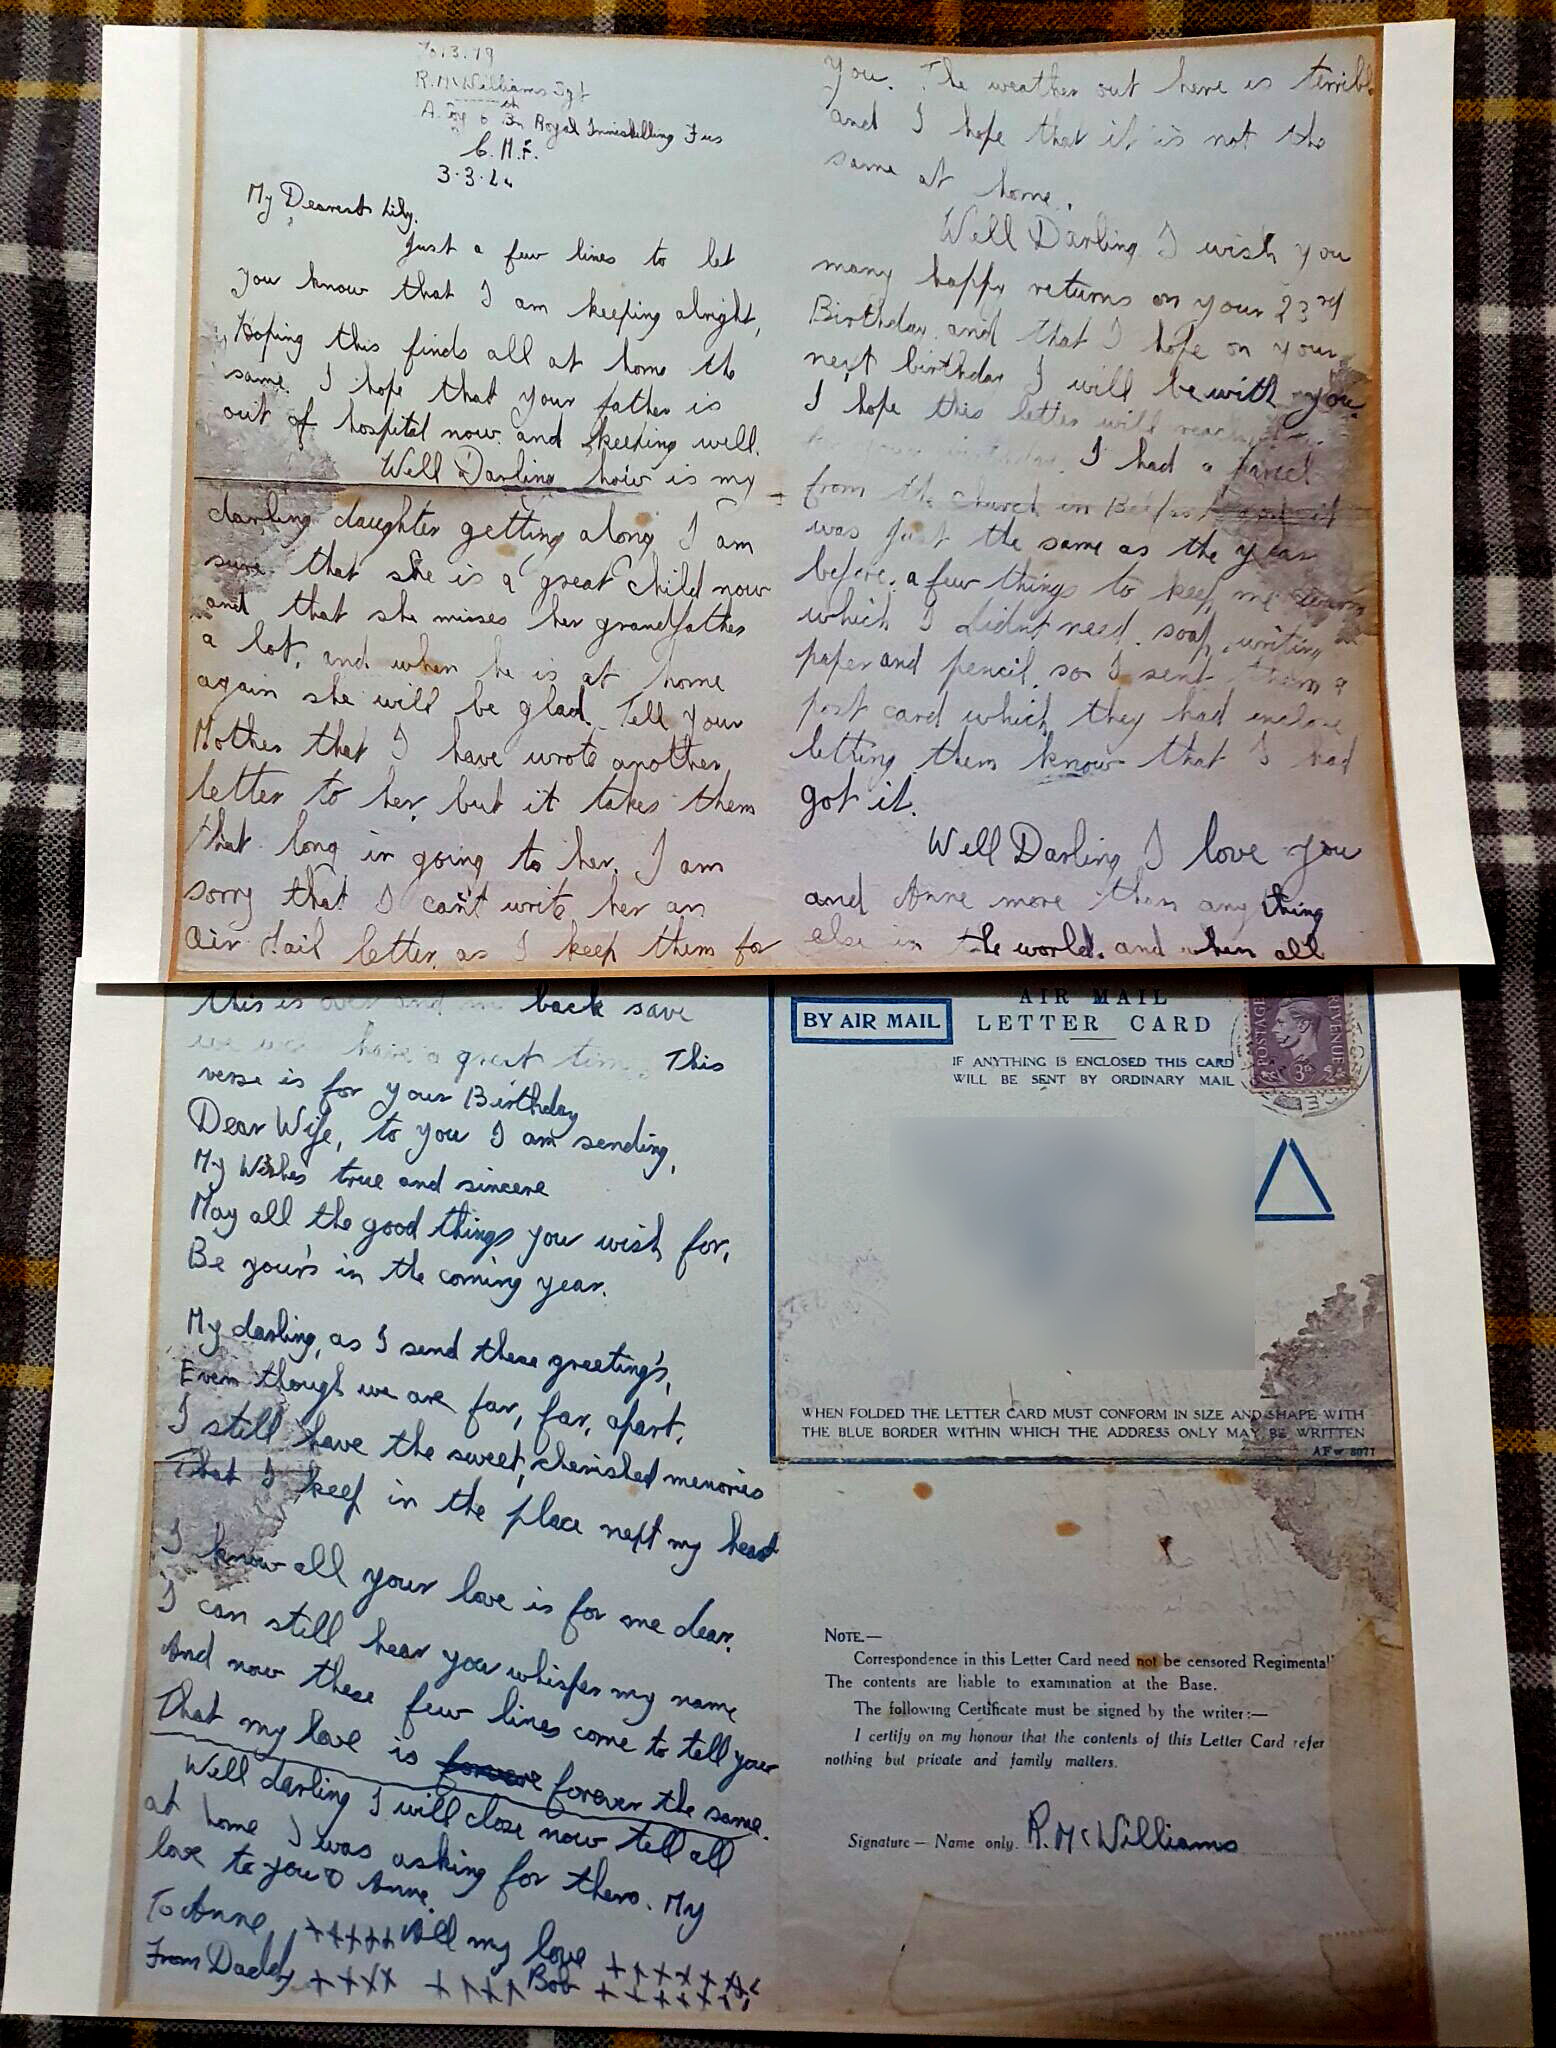 R. McWilliams Sgt
A. Coy 6 Bn Royal Inniskilling Fus
C.M.F.
3.3.44
My Dearest Lily,
Just a few lines to let
you know that I am keeping alright,
Hoping this finds all at home the
same. I hope that your father is
out of hospital now. and keeping well.
Well Darling how is my
darling daughter getting along I am
sure that she is a great child now
and that she misses her grandfather
a lot, and when he is at home
again she will be glad. Tell your
Mother that I have wrote another
letter to her, but it takes them
that long in going to her. I am
sorry that I can't write her an
Air Mail letter as I keep them for
you. The weather out here is terrible
and I hope that it is not the
same at home.
Well Darling I wish you
many happy returns on your 23rd
Birthday and that I hope on your
next birthday I will be with you.
I hope this letter will reach
birthday. I had a parcel
from the church in Belfast and it
was just the same as the year
before. a few things to keep me warm
which I didnt need. soap, writing
paper and pencil. so I sent them a
post card which they had enclose
letting them know that I had
got it.
Well Darling I love you
and Anne more than any thing
else in the world. and when all
this is over and back save
we have a great time. This
verse is for your Birthday
Dear Wife, to you I am sending,
My Wishes true and sincere
May all the good things you wish for,
Be your's in the coming year.
My darling, as I send these greeting's,
Even though we are far, far, apart,
I still have the sweet, cherished memories
That I keep in the place next my heart
I know all your love is for me dear.
I can still hear you whisper my name
And now these few lines come to tell you
That my love is forever the same.
Well darling I will close now tell all
at home I was asking for them. My
love to you & Anne.
To Anne, +++++ All my love +++++++
From Daddy ++++ ++++ Bob +++++++
BY AIR MAIL
AIR MAIL
LETTER CARD
IF ANYTHING IS ENCLOSED THIS CARD
WILL BE SENT BY ORDINARY MAIL
POSTAGE
REVENUE
3D
WHEN FOLDED THE LETTER CARD MUST CONFORM IN SIZE AND SHAPE WITH
THE BLUE BORDER WITHIN WHICH THE ADDRESS ONLY MAY BE WRITTEN
NOTE.—
Correspondence in this Letter Card need not be censored Regimental
The contents are liable to examination at the Base.
The following Certificate must be signed by the writer:—
I certify on my honour that the contents of this Letter Card refer
nothing but private and family matters.
Signature — Name only. R. McWilliams